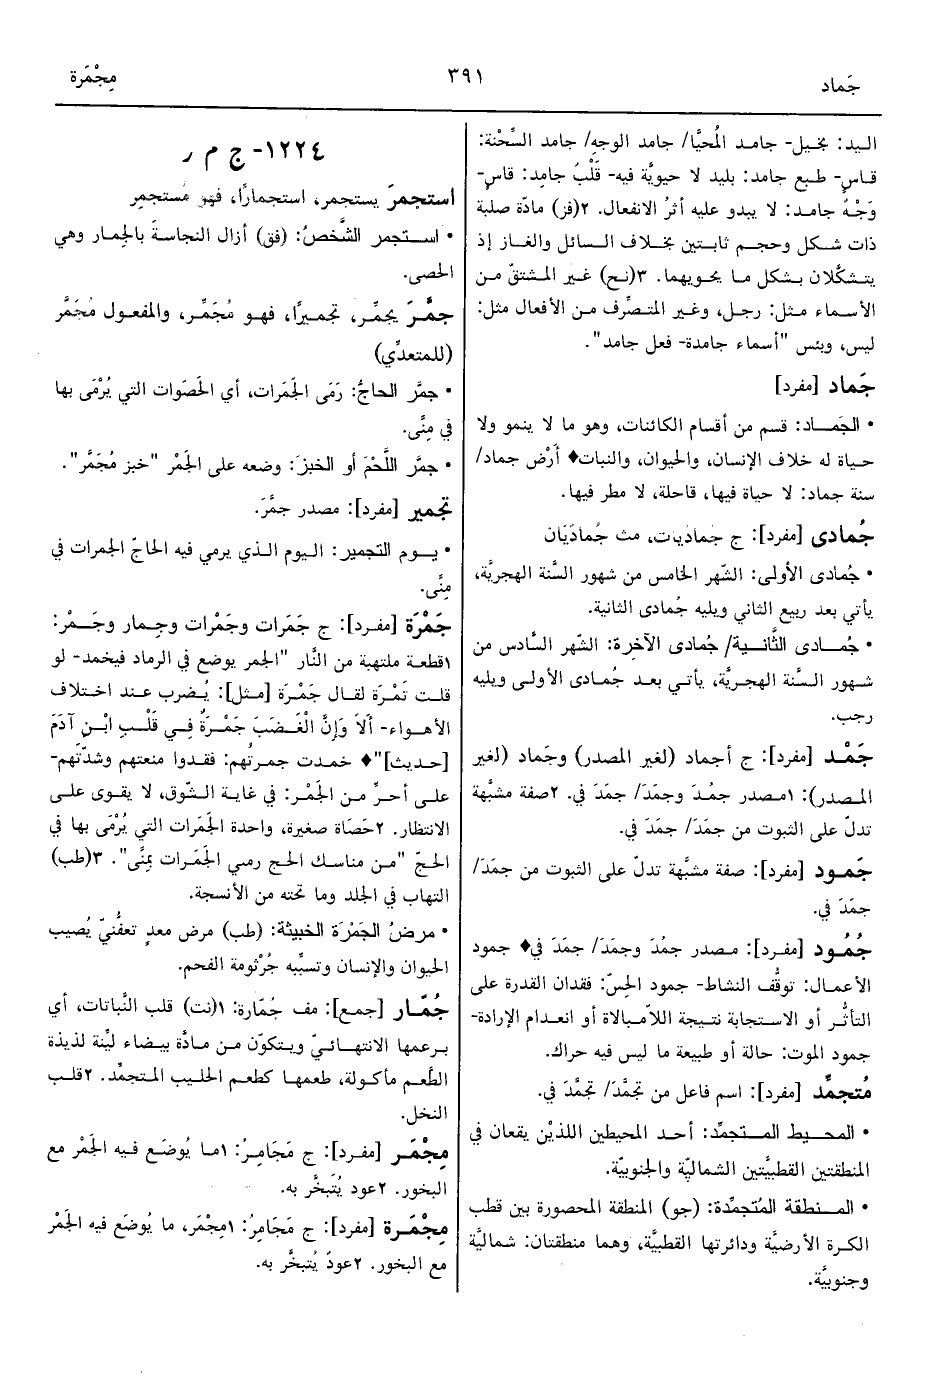 جَماد
٣٩١
مِجْمَرة
اليد: بخيل- جامد المُحيَّا/ جامد الوجه/ جامد السِّحْنة:
قاسٍ- طبع جامد: بليد لا حيويَّة فيه- قَلْبٌ جامِد: قاسٍ-
وَجْهٌ جامد: لا يبدو عليه أثرُ الانفعال. ٢(فز) مادّة صلبة
ذات شكل وحجم ثابتين بخلاف السائل والغاز إذ
يتشكَّلان بشكل ما يحويهما. ٣(نح) غير المشتقّ من
الأسماء مثل: رجل، وغير المتصرِّف من الأفعال مثل:
ليس، وبئس "أسماء جامدة- فعل جامد".
جَماد [مفرد]
• الجَمـاد: قسم من أقسام الكائنات، وهو ما لا ينمو ولا
حياة له خلاف الإنسان، والحيوان، والنبات♦ أَرْض جماد/
سنة جماد: لا حياة فيها، قاحلة، لا مطر فيها.
جُمادى [مفرد]: ج جماديات، مث جُمادَيَان
• جُمادى الأولى: الشّهر الخامس من شهور السَّنة الهجريَّة،
يأتي بعد ربيع الثاني ويليه جُمادى الثانية.
• جُمـادى الثَّانـية/ جُمادى الآخرة: الشّهر السَّادس من
شهور السَّنة الهجريَّة، يأتي بعد جُمادى الأولى ويليه
رجب.
جَمْد [مفرد]: ج أجماد (لغير المصدر) وجَماد (لغير
المصدر): ١مصدر جمُدَ وجمَدَ/ جمَدَ في. ٢صفة مشبَّهة
تدلّ على الثبوت من جمَدَ/ جمَدَ في.
جَمود [مفرد]: صفة مشبَّهة تدلّ على الثبوت من جمَدَ/
جمَدَ في.
جُمُود [مفرد]: مصدر جمُدَ وجمَدَ/ جمَدَ في♦ جمود
الأعمال: توقُّف النشاط- جمود الحِسّ: فقدان القدرة على
التأثُّر أو الاستجابة نتيجة اللاّمبالاة أو انعدام الإرادة-
جمود الموت: حالة أو طبيعة ما ليس فيه حراك.
مُتجمِّد [مفرد]: اسم فاعل من تجمَّدَ/ تجمَّدَ في.
• المحـيط المـتجمِّد: أحد المحيطين اللذيْن يقعان في
المنطقتين القطبيَّتين الشماليّة والجنوبيّة.
• المـنطقة المُتجمِّدة: (جو) المنطقة المحصورة بين قطب
الكرة الأرضيَّة ودائرتها القطبيَّة، وهما منطقتان: شماليَّة
وجنوبيَّة.
١٢٢٤- ج م ر
استجمرَ يستجمر، استجمارًا، فهو مُستجمِر
• استجمر الشَّخصُ: (فق) أزال النجاسة بالجِمار وهي
الحصى.
جمَّرَ يجمِّر، تجميرًا، فهو مُجمِّر، والمفعول مُجمَّر
(للمتعدِّي)
• جمَّر الحاجُّ: رَمَى الجَمَرات، أي الحَصَوات التي يُرْمَى بها
في مِنًى.
• جمَّر اللَّحْمَ أو الخبزَ: وضعه على الجَمْر "خبز مُجمَّر".
تجمير [مفرد]: مصدر جمَّرَ.
• يـوم التجمير: اليوم الذي يرمي فيه الحاجّ الجمرات في
مِنًى.
جَمْرَة [مفرد]: ج جَمَرات وجَمْرات وجِمار وجَمْر:
١قطعة ملتهبة من النَّار "الجمر يوضع في الرماد فيخمد- لو
قلت تَمْرَة لقال جَمْرَة [مثل]: يُضرب عند اختلاف
الأهواء- أَلاَ وَإِنَّ الْغَضَبَ جَمْرَةٌ فِي قَلْبِ ابْنِ آدَمَ
[حديث]"♦ خمدت جمرتُهم: فقدوا منعتهم وشدّتَهم-
على أحرِّ من الجَمْر: في غاية الشّوق، لا يقوى على
الانتظار. ٢حَصَاة صغيرة، واحدة الجَمَرات التي يُرْمَى بها في
الحجّ "من مناسك الحج رمي الجَمَرات بِمنًى". ٣(طب)
التهاب في الجلد وما تحته من الأنسجة.
• مرضُ الجَمْرَة الخبيثة: (طب) مرض معدٍ تعفُّنيّ يُصيب
الحيوان والإنسان وتسبِّبه جُرْثومة الفحم.
جُمّار [جمع]: مف جُمّارة: ١(نت) قلب النَّباتات، أي
برعمها الانتهائيّ ويتكوّن من مادَّة بيضاء ليِّنة لذيذة
الطَّعم مأكولة، طعمها كطعم الحليب المتجمِّد. ٢قلب
النخل.
مِجْمَر [مفرد]: ج مَجَامِرُ: ١ما يُوضَع فيه الجَمْر مع
البخور. ٢عود يُتبخَّر به.
مِجْمَرة [مفرد]: ج مَجَامِرُ: ١مِجْمَر، ما يُوضَع فيه الجَمْر
مع البخور. ٢عودَ يُتبخَّر به.